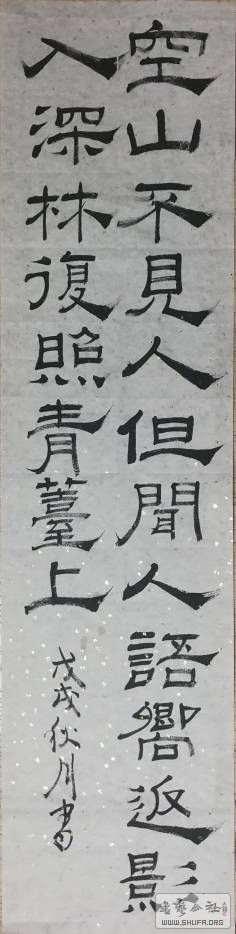 空山不見人但聞人語響返影
入深林復照青薹上
戊戌秋月書
書藝公社
WWW.SHUFA.ORG